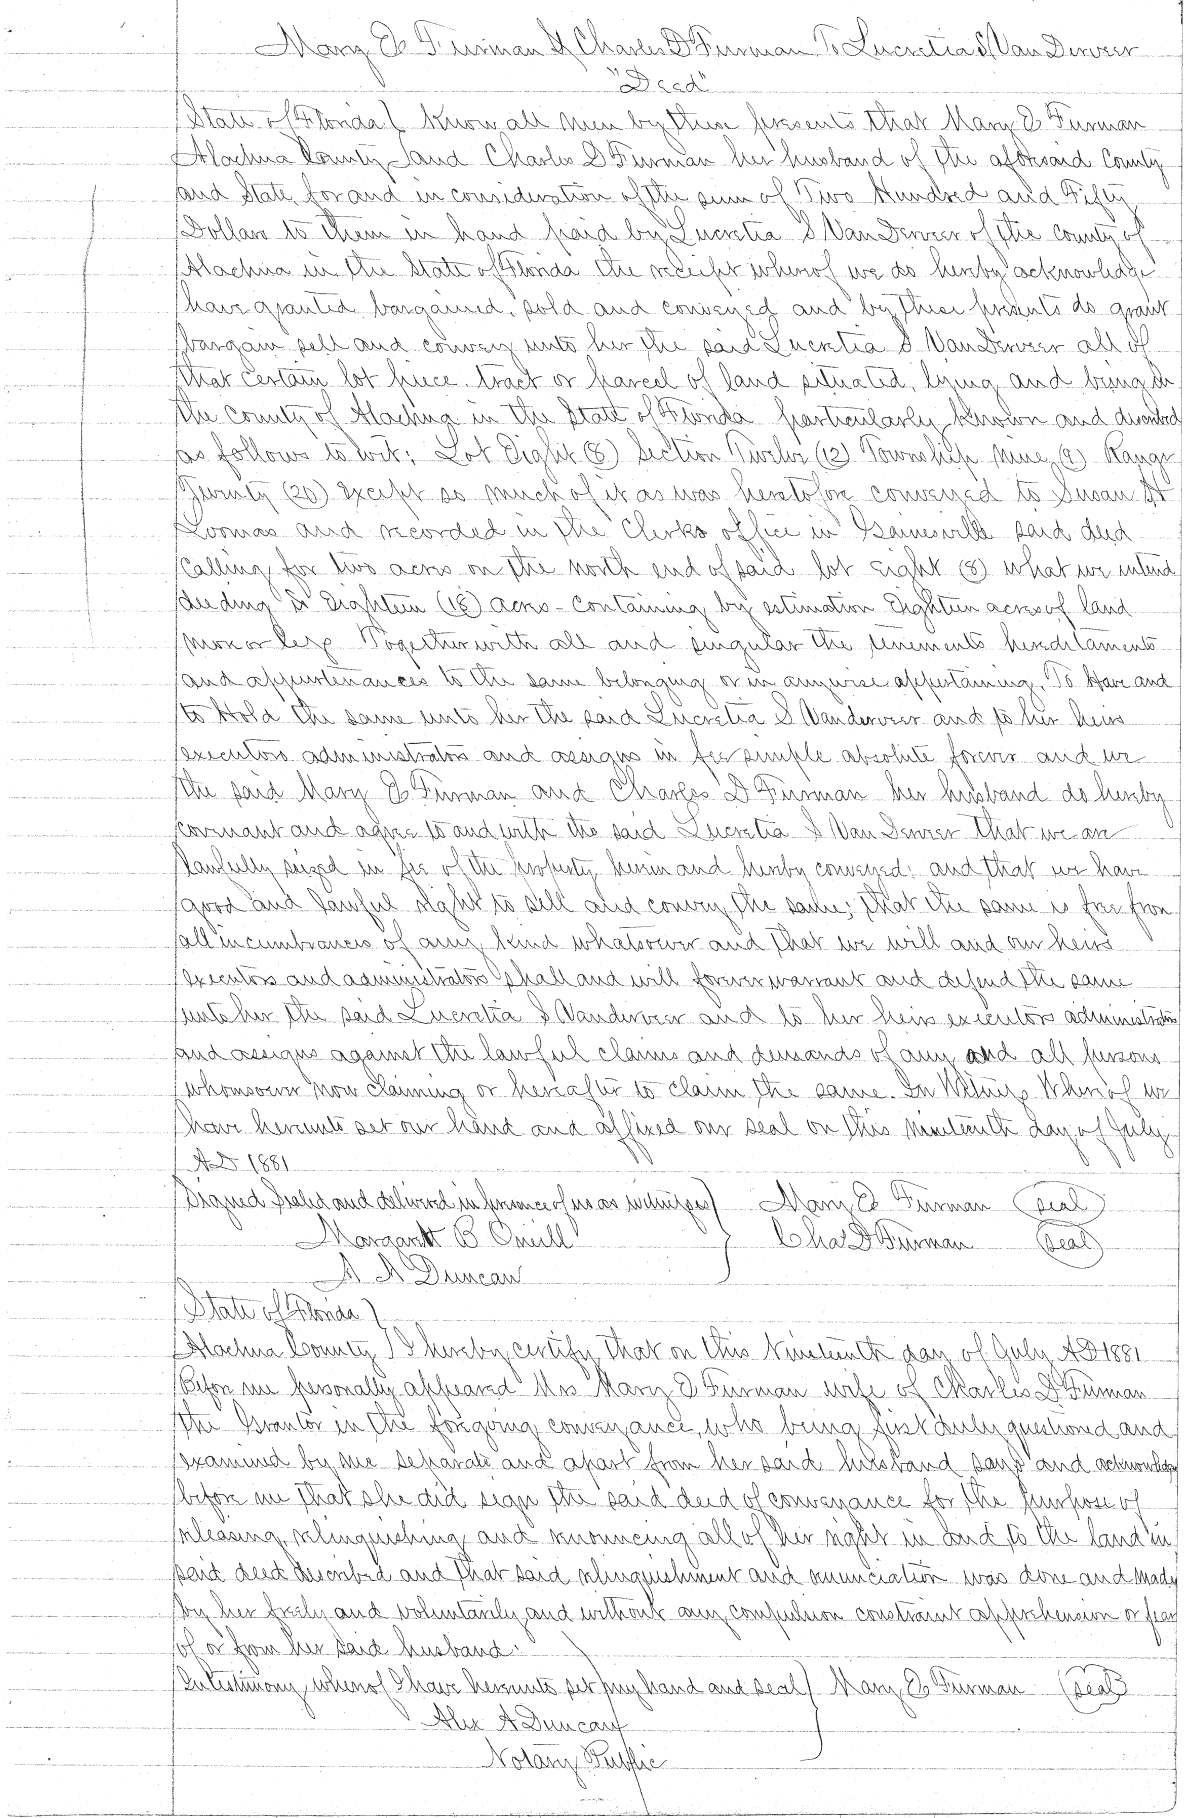 Mary E Furman & Charles D Furman To Lucretia S Van Derveer
"Deed"
State of Florida } Know all men by these presents that Mary E Furman
Alachua County } and Charles D Furman her husband of the aforesaid County
and State for and in consideration of the sum of Two Hundred and Fifty
Dollars to them in hand paid by Lucretia S VanDerveer of the County of
Alachua in the State of Florida the receipt whereof we do hereby acknowledge
have granted bargained, sold and conveyed and by these presents do grant
bargain sell and convey unto her the said Lucretia S VanDerveer all of
that certain lot piece tract or parcel of land situated, lying and being in
the County of Alachua in the State of Florida particularly known and described
as follows to wit; Lot Eight (8) Section Twelve (12) Township Nine (9) Range
Twenty (20) except so much of it as was heretofore conveyed to Susan H
Loomas and recorded in the Clerks office in Gainesville said deed
calling for two acres on the north end of said lot eight (8) what we intend
deeding is Eighteen (18) acres - containing by estimation Eighteen acres of land
more or less Together with all and singular the tenements hereditaments
and appurtenances to the same belonging or in anywise appertaining, To Have and
to Hold the same unto her the said Lucretia S Vanderveer and to her heirs
executors administrators and assigns in fee simple absolute forever and we
the said Mary E Furman and Charles D Furman her husband do hereby
covenant and agree to and with the said Lucretia S Van Derveer that we are
lawfully seized in fee of the property herein and hereby conveyed; and that we have
good and lawful right to sell and convey the same; that the same is free from
all incumbrances of any kind whatsoever and that we will and our heirs
executors and administrators shall and will forever warrant and defend the same
unto her the said Lucretia S Vanderveer and to her heirs executors administrators
and assigns against the lawful claims and demands of any and all persons
whomsoever now claiming or hereafter to claim the same. In Witness Whereof we
have hereunto set our hand and affixed our seal on this nineteenth day of July
AD 1881
Signed Sealed and delivered in presence of us as witnesses } Mary E Furman (seal)
Margarett B Oneill } Chas D Furman (seal)
A A Duncan
State of Florida }
Alachua County } I hereby certify that on this Nineteenth day of July AD 1881
Before me personally appeared Mrs Mary E Furman wife of Charles D Furman
the Grantor in the foregoing conveyance, who being first duly questioned and
examined by me separate and apart from her said husband says and acknowledges
before me that she did sign the said deed of conveyance for the purpose of
releasing, relinquishing and renouncing all of her right in and to the land in
said deed described and that said relinquishment and renunciation was done and made
by her freely and voluntarily and without any compulsion constraint apprehension or fear
of or from her said husband.
In testimony whereof I have hereunto set my hand and seal } Mary E Furman (seal)
Alex A Duncan
Notary Public